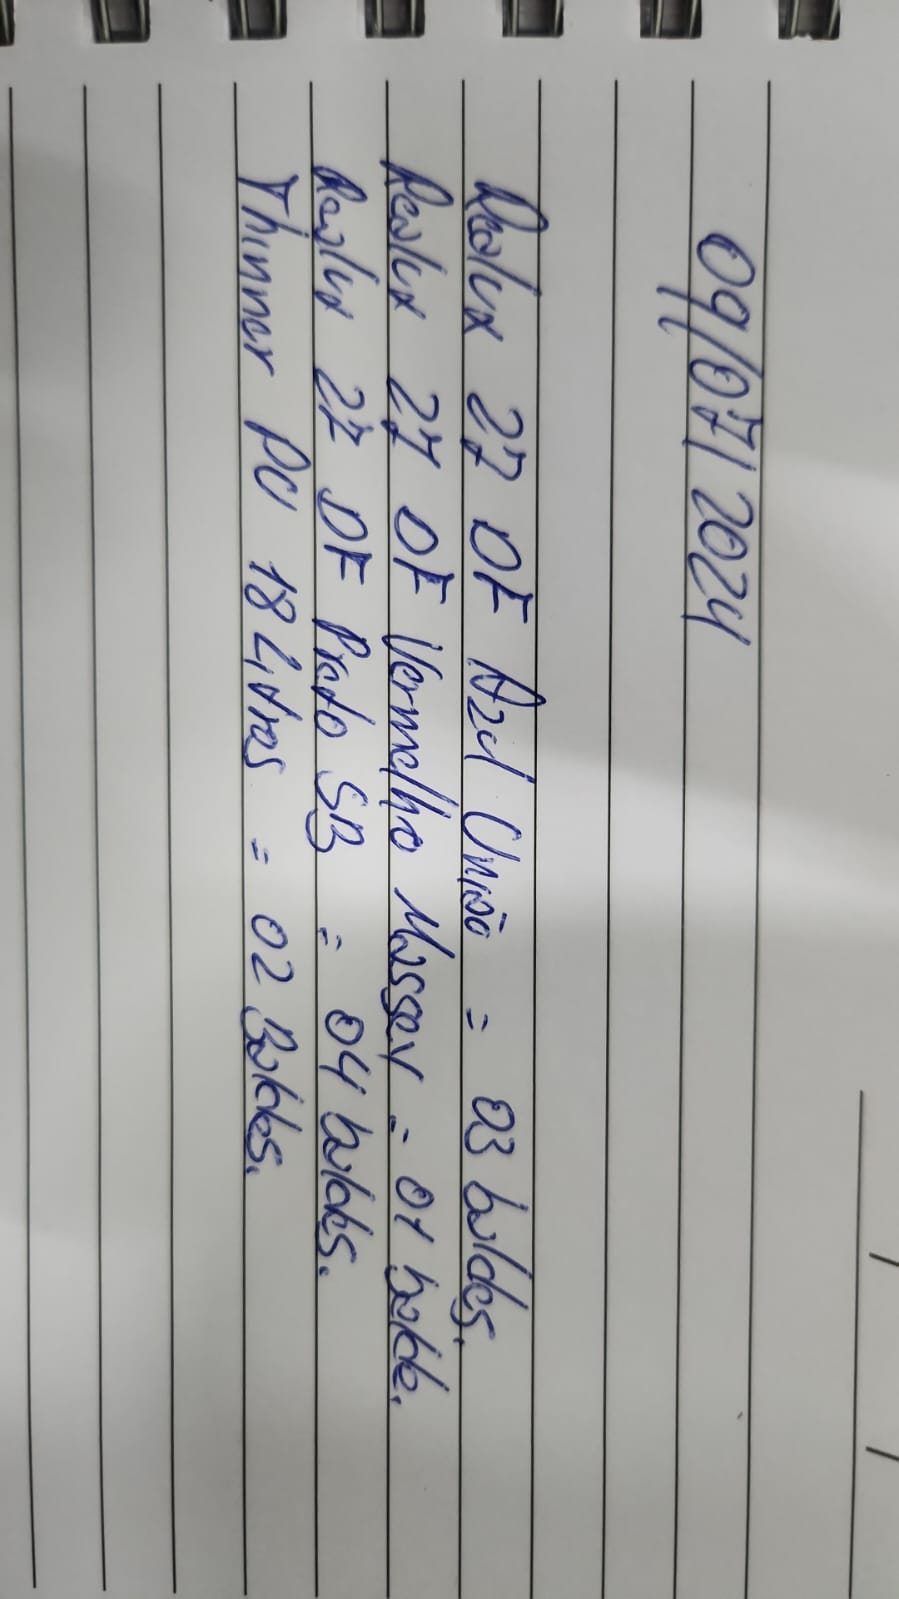 09/07/2024
Realux 27 DF Azul União = 03 baldes.
Realux 27 DF Vermelho Massey = 01 balde.
Realux 27 DF Preto SB = 04 baldes.
Thinner PU 18 Litros = 02 Baldes.